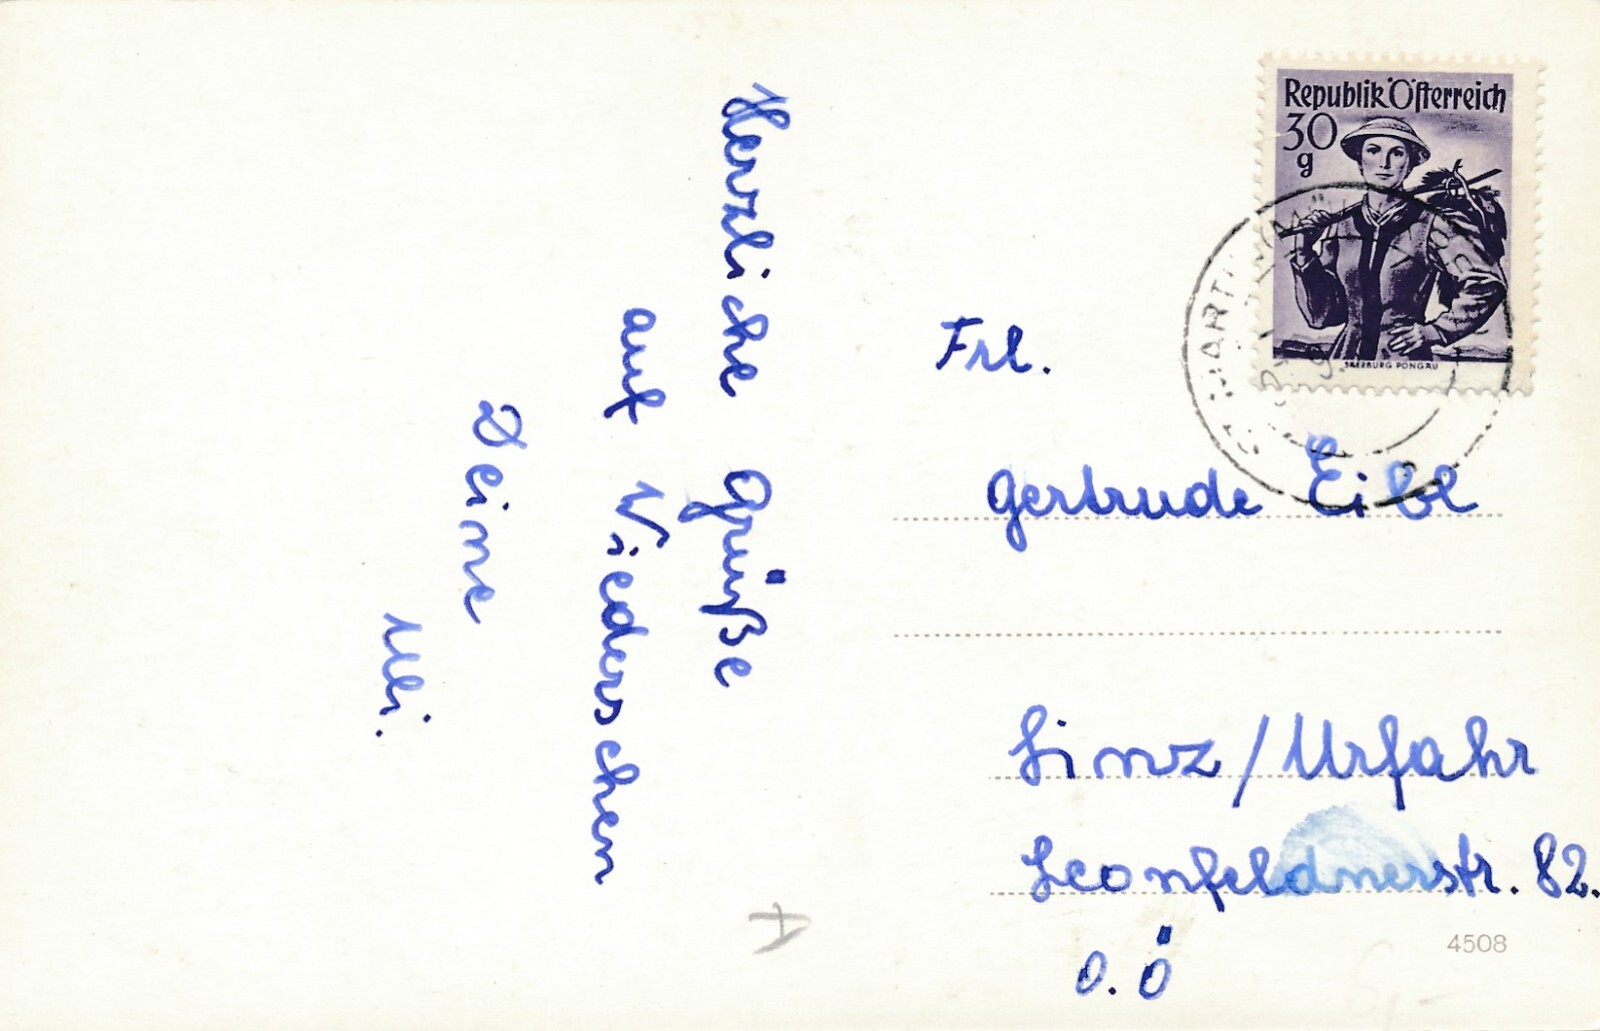 Herzliche Grüße
auf Wiedersehen
Deine
Uli.
Republik Österreich
30
g
SALZBURG PONGAU
Frl.
Gertrude Eibl
Linz/Urfahr
Leonfeldnerstr. 82.
O.Ö
4508